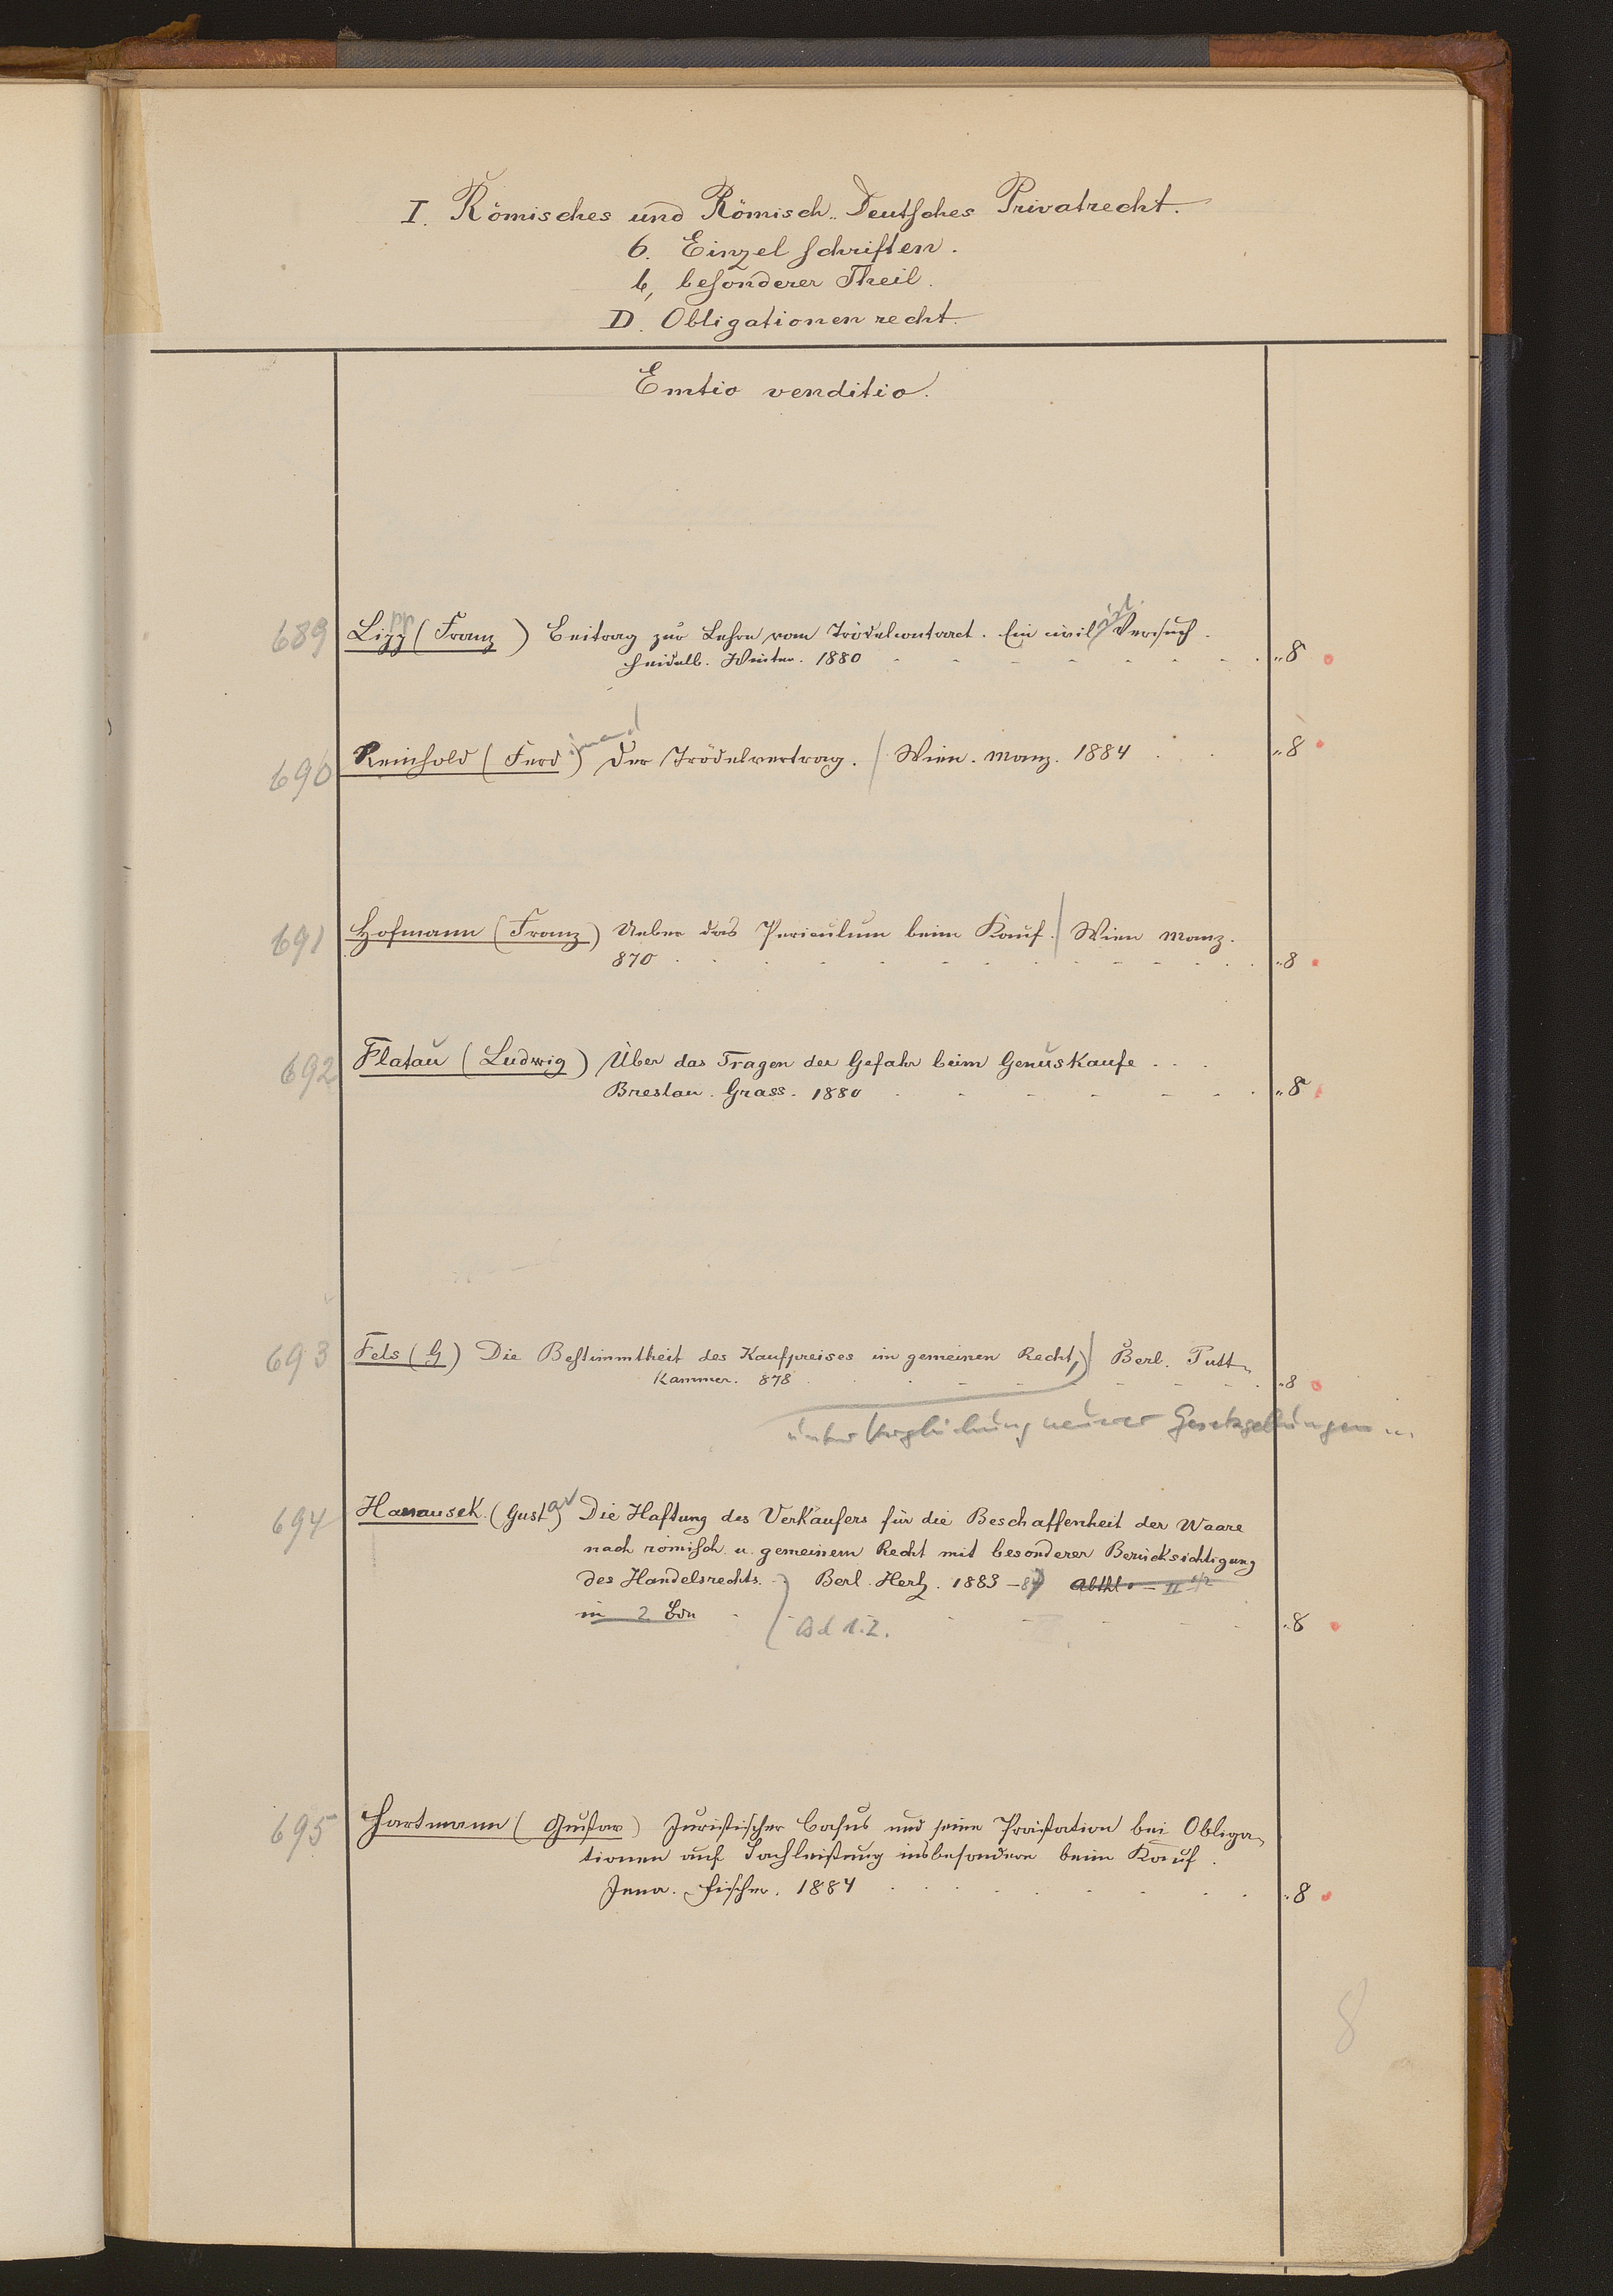 I. Römisches und Römisch-Deutsches Privatrecht.
6. Einzelschriften.
b, besonderer Theil.
D. Obligationenrecht.
Emtio venditio.
689 Lipp (Franz) Beitrag zur Lehre vom Trödelcontract. Ein civilist. Versuch.
Heidelb. Winter. 1880 "8
690 Reinhold (Ferdinand) Der Trödelvertrag. / Wien. Manz. 1884 "8
691 Hofmann (Franz) Ueber das Periculum beim Kauf. / Wien Manz.
870 "8
692 Flatau (Ludwig) Über das Tragen der Gefahr beim Genuskaufe
Breslau. Grass. 1880 "8
693 Fels (G) Die Bestimmtheit des Kaufpreises im gemeinen Recht, / Berl. Putt-
Kammer. 878 "8
unter Vergleichung neuerer Gesetzgebungen ...
694 Hanausek (Gustav) Die Haftung des Verkäufers für die Beschaffenheit der Waare
nach römisch. u. gemeinem Recht mit besonderer Berücksichtigung
des Handelsrechts. Berl. Hertz. 1883-87 Abthl - II 1/2
in 2 Bdn Bd 1.2. "8
695 Hartmann (Gustav) Juristischer Casus und seine Prästation bei Obliga-
tionen auf Sachleistung insbesondere beim Kauf.
Jena. Fischer. 1884 "8
8